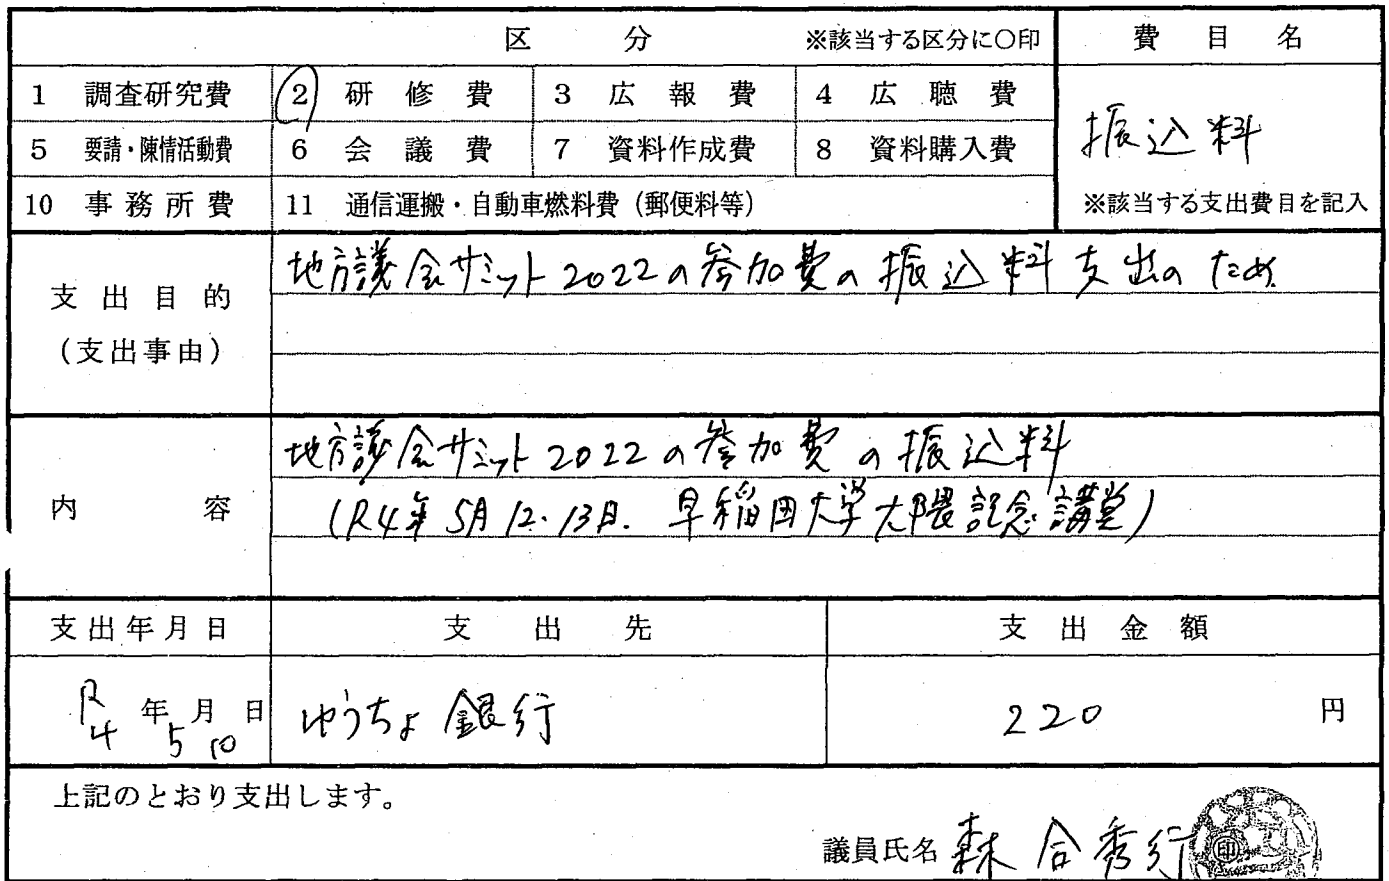 区 分 ※該当する区分に○印 費 目 名
1 調査研究費 ② 研 修 費 3 広 報 費 4 広 聴 費
5 要請・陳情活動費 6 会 議 費 7 資料作成費 8 資料購入費
振込料
10 事 務 所 費 11 通信運搬・自動車燃料費（郵便料等） ※該当する支出費目を記入
支 出 目 的
（支出事由）
地方議会サミット2022の参加費の振込料支出のため
内 容
地方議会サミット2022の参加費の振込料
（R4年5月12・13日. 早稲田大学大隈記念講堂）
支出年月日 支 出 先 支 出 金 額
R4年5月10日 ゆうちょ銀行 220 円
上記のとおり支出します。
議員氏名 森合秀行 印